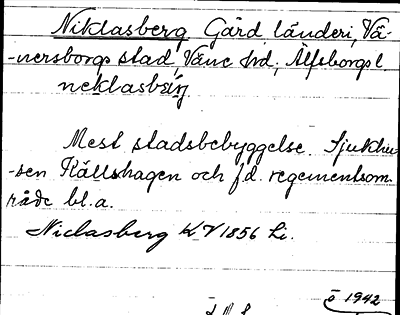 Niklasberg Gård, länderi, Vä-
-nersborgs stad, Väne hd, Älfsborgs l.
neklasbärj
Mest stadsbebyggelse. Sjukhu-
-sen Källshagen och f.d. regementsom-
råde bl.a.
Niclasberg KV 1856 Li.
ö 1942